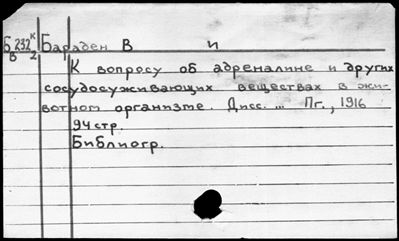 Б 232 К Бараден В И
в 2
К вопросу об адреналине и других
сосудосуживающих веществах в жи-
вотном организме. Дисс. ... Пг., 1916
94 стр.
Библиогр.